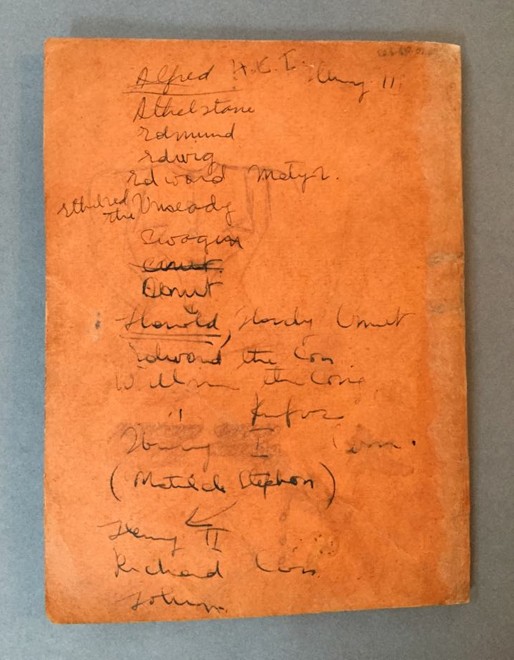 Alfred H.K.I. Henry II
Athelstane
Edmund
Edwig
Edward Matyr.
Ethelred
the Unready
Canut
Harold, Hardy Cnut
Edward the Con
William the Conq
" Rufus
Henry I
(Matilda Stephen)
Henry II
Richard
John